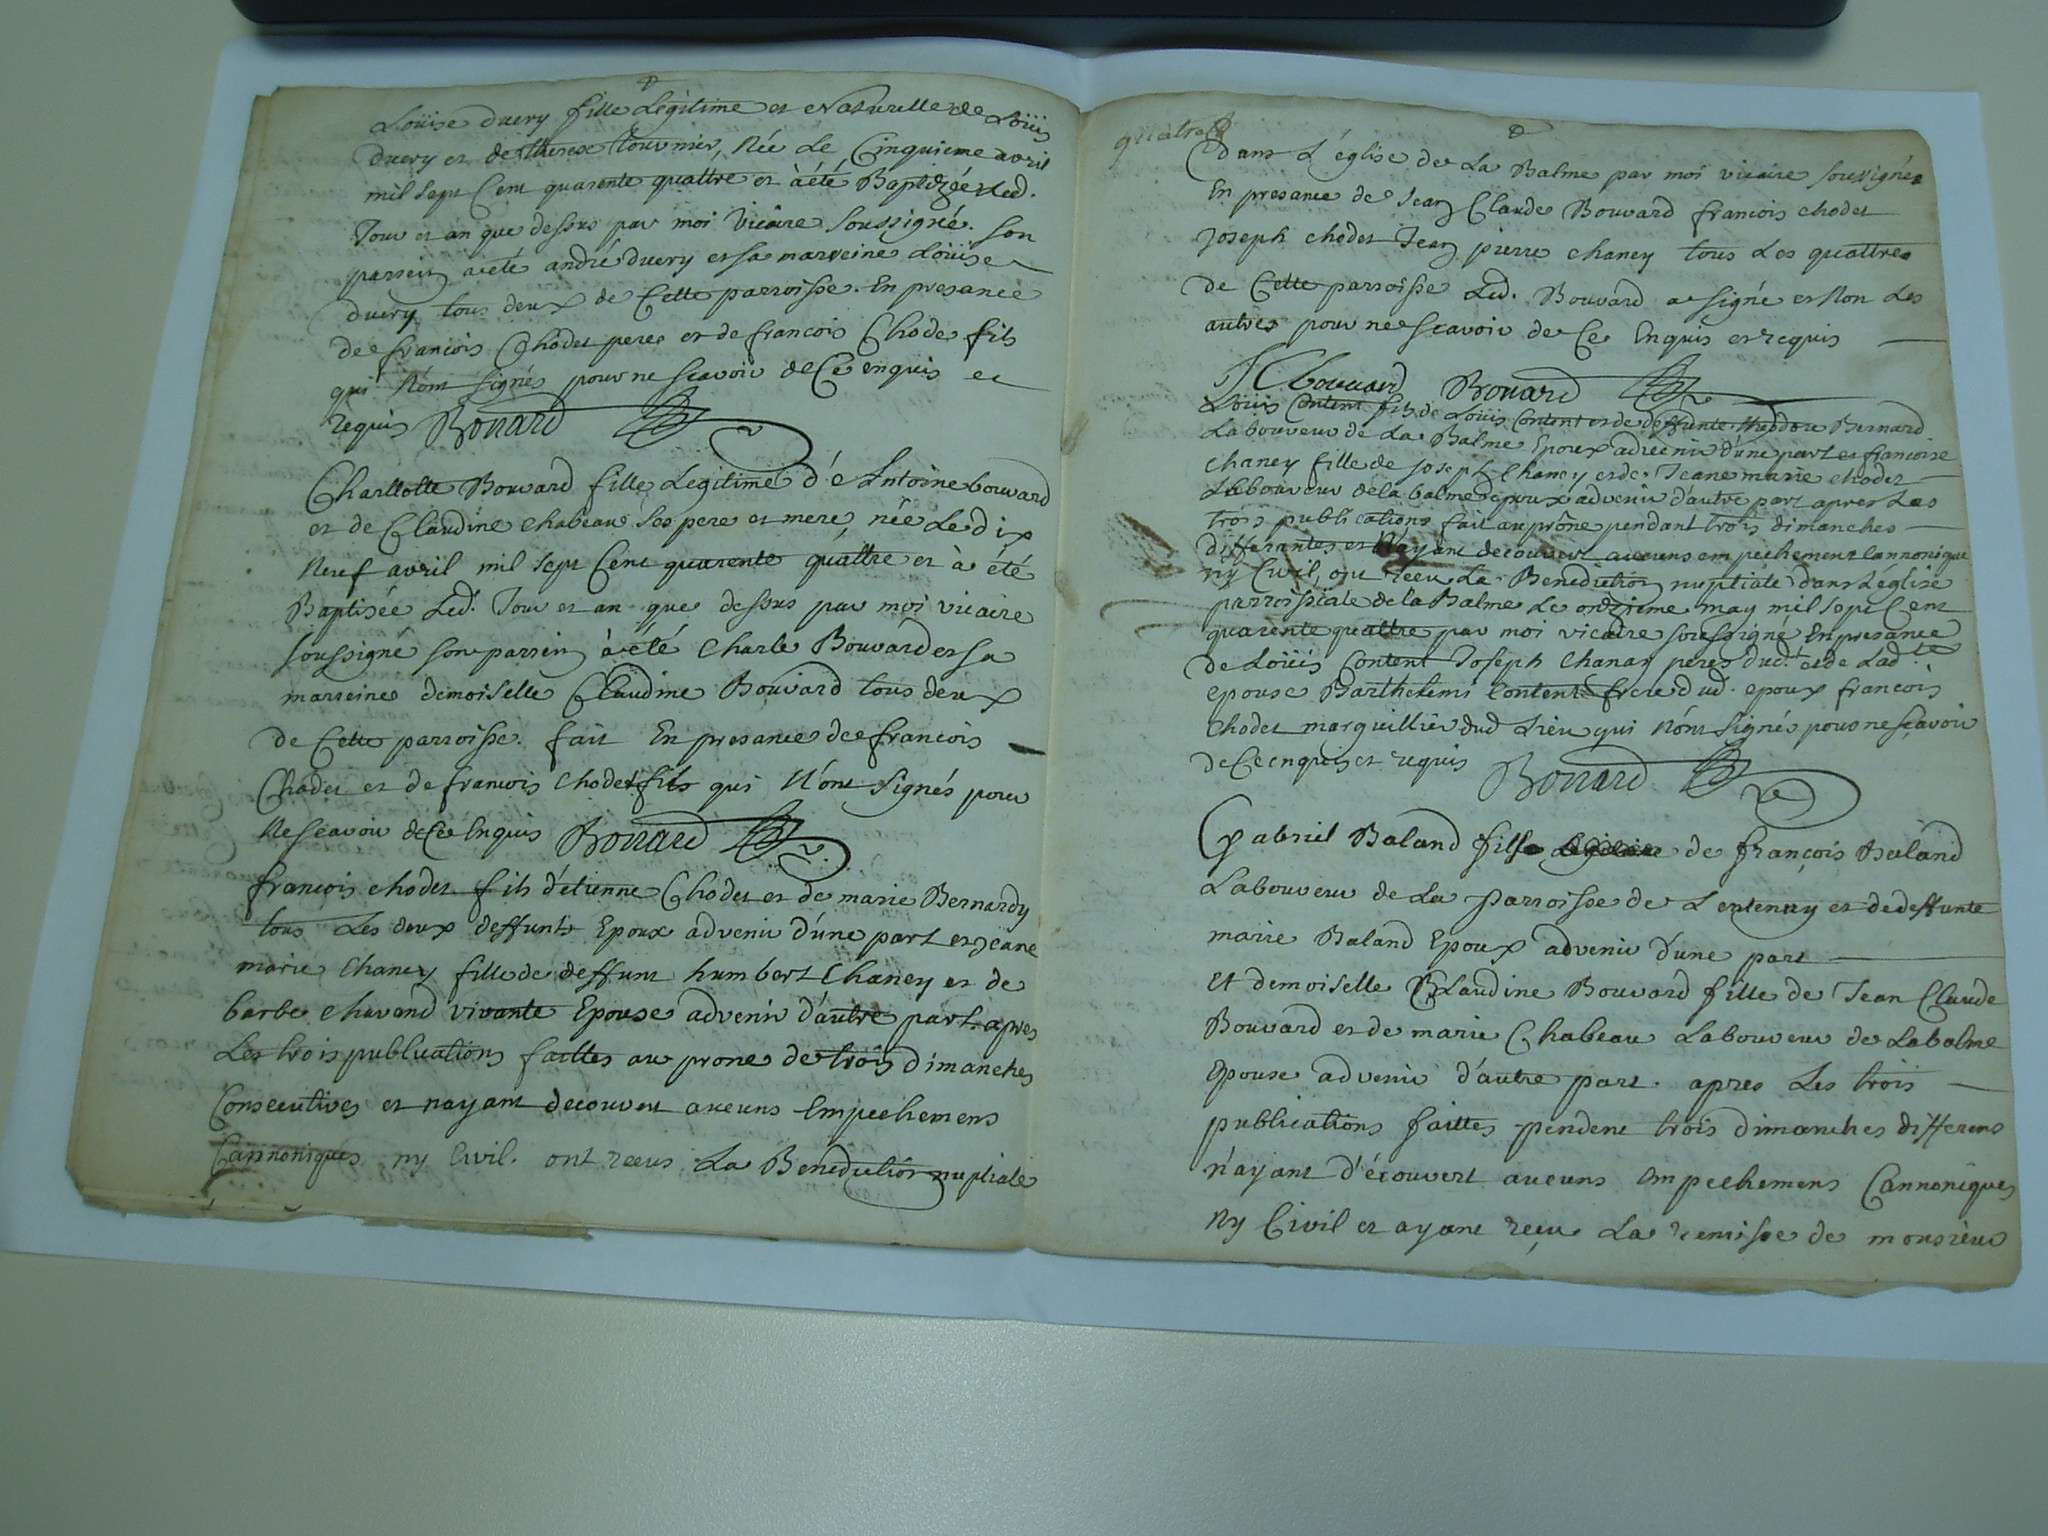 Loüise duery fille Légitime et Naturelle de Loüis
duery et de therese tournier, Née Le Cinquieme avril
mil sept Cent quarente quattre et à été Baptizée Led.
Jour et an que dessus par moi Vicaire soussigné. son
parrein a été andré duery et sa marreine Loüise
duery tous deux de Cette parroisse. En presance
de francois Chodet pere et de francois Chode fils
qui N'ont signés pour ne scavoir de Ce enquis et
requis Bouard
Charllotte Bouvard fille Legitime d'e Antoine bouvard
et de Claudine Chabeau ses pere et mere, née Le dix
Neuf avril mil sept Cent quarente quattre et à été
Baptisée Led. Jour et an que dessus par moi vicaire
soussigné son parrein à été Charle Bouvard et sa
marreine demoiselle Claudine Bouvard tous deux
de Cette parroisse. fait En presance de francois
Chodet et de francois Chodet fils qui N'ont signés pour
Ne scavoir de Ce Enquis Bouard
francois chodet fils d'etienne Chodet et de marie Bernardy
tous Les deux deffunts Epoux advenir d'une part et jeane
marie Chaney fille de deffunt humbert Chaney et de
barbe Chavand vivante Epouse advenir d'autre part. apres
Les trois publications faittes au prone de trois dimanches
Consecutives et nayant decouvert aucuns Empechemens
Cannoniques ny Civil. ont receus La Benediction nuptiale
quatre
dans L'église de La Balme par moi vicaire soussigné
En presance de Jean Claude Bouvard francois chodet
Joseph chodet Jean pierre chaney tous Les quattre
de Cette parroisse Led. Bouvard a signé et Non Les
autres pour ne scavoir de Ce Enquis et requis
J C bouuard Bouard
Loüis Content fils de Loüis Content et de deffunte Bernard
Laboureur de La Balme Epoux advenir d'une part et francoise
Chaney fille de joseph Chaney et de Jeane marie chodet
Laboureur de la balme epoux advenir d'autre part apres Les
trois publications fait au prône pendant trois dimanches
differantes et Nayant decouvert aucuns empechement Cannonique
ny Civil, ont receu La Benediction nuptiale dans L'église
parroissiale de la Balme Le ondzieme may mil sept Cent
quarente quattre par moi vicaire soussigné En presance
de Loüis Content Joseph Chanay peres dud. et de Lad.te
epouse Barthelemi Content frere dud. epoux francois
Chodet marguillier dud Lieu qui N'ont signés pour ne scavoir
de Ce enquis et requis Bouard
Gabriel Baland fils de françois Baland
Laboureur de La parroisse de Lentenay et de deffunte
marie Baland Epoux advenir d'une part
Et demoiselle Claudine Bouvard fille de Jean Claude
Bouvard et de marie Chabeau Laboureur de Labalme
Epouse advenir d'autre part. apres Les trois
publications faittes pendent trois dimanches differens
n'ayant d'écouvert aucuns Empechemens Cannoniques
Ny Civil et ayant reçu La remisse de monsieur